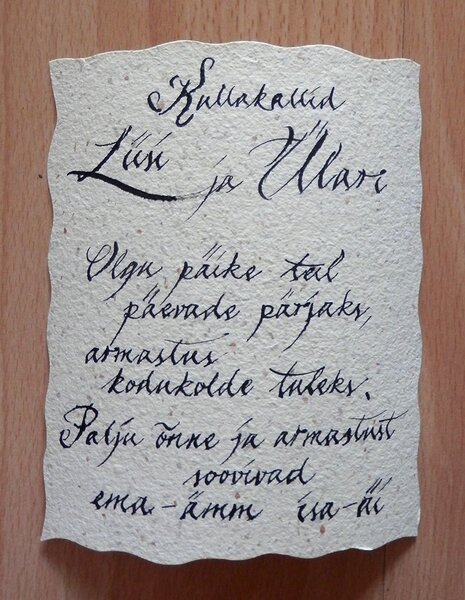 Kullakallid
Liisi ja Ülari
Olgu päike teil
päevade pärjaks,
armastus
kodukolde tuleks.
Palju õnne ja armastust
soovivad
ema-ämm isa-äi